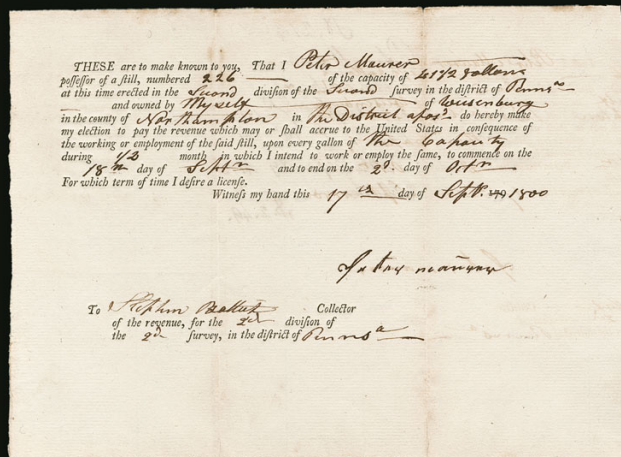 THESE are to make known to you, That I Peter Maurer
possessor of a still, numbered 226 of the capacity of 41 1/2 Gallons
at this time erected in the Second division of the Second survey in the district of Pennsᵃ
and owned by Myself of Weisenburg
in the county of Northampton in The District aforsᵈ do hereby make
my election to pay the revenue which may or shall accrue to the United States in consequence of
the working or employment of the said still, upon every gallon of the Capacity
during 1/2 month in which I intend to work or employ the same, to commence on the
18th day of Septr and to end on the 2d. day of Octr
For which term of time I desire a license.
Witness my hand this 17th day of Sept. 179 1800
Peter maurer
To Stephen Collector
of the revenue, for the 2d division of
the 2d survey, in the district of Pennsᵃ